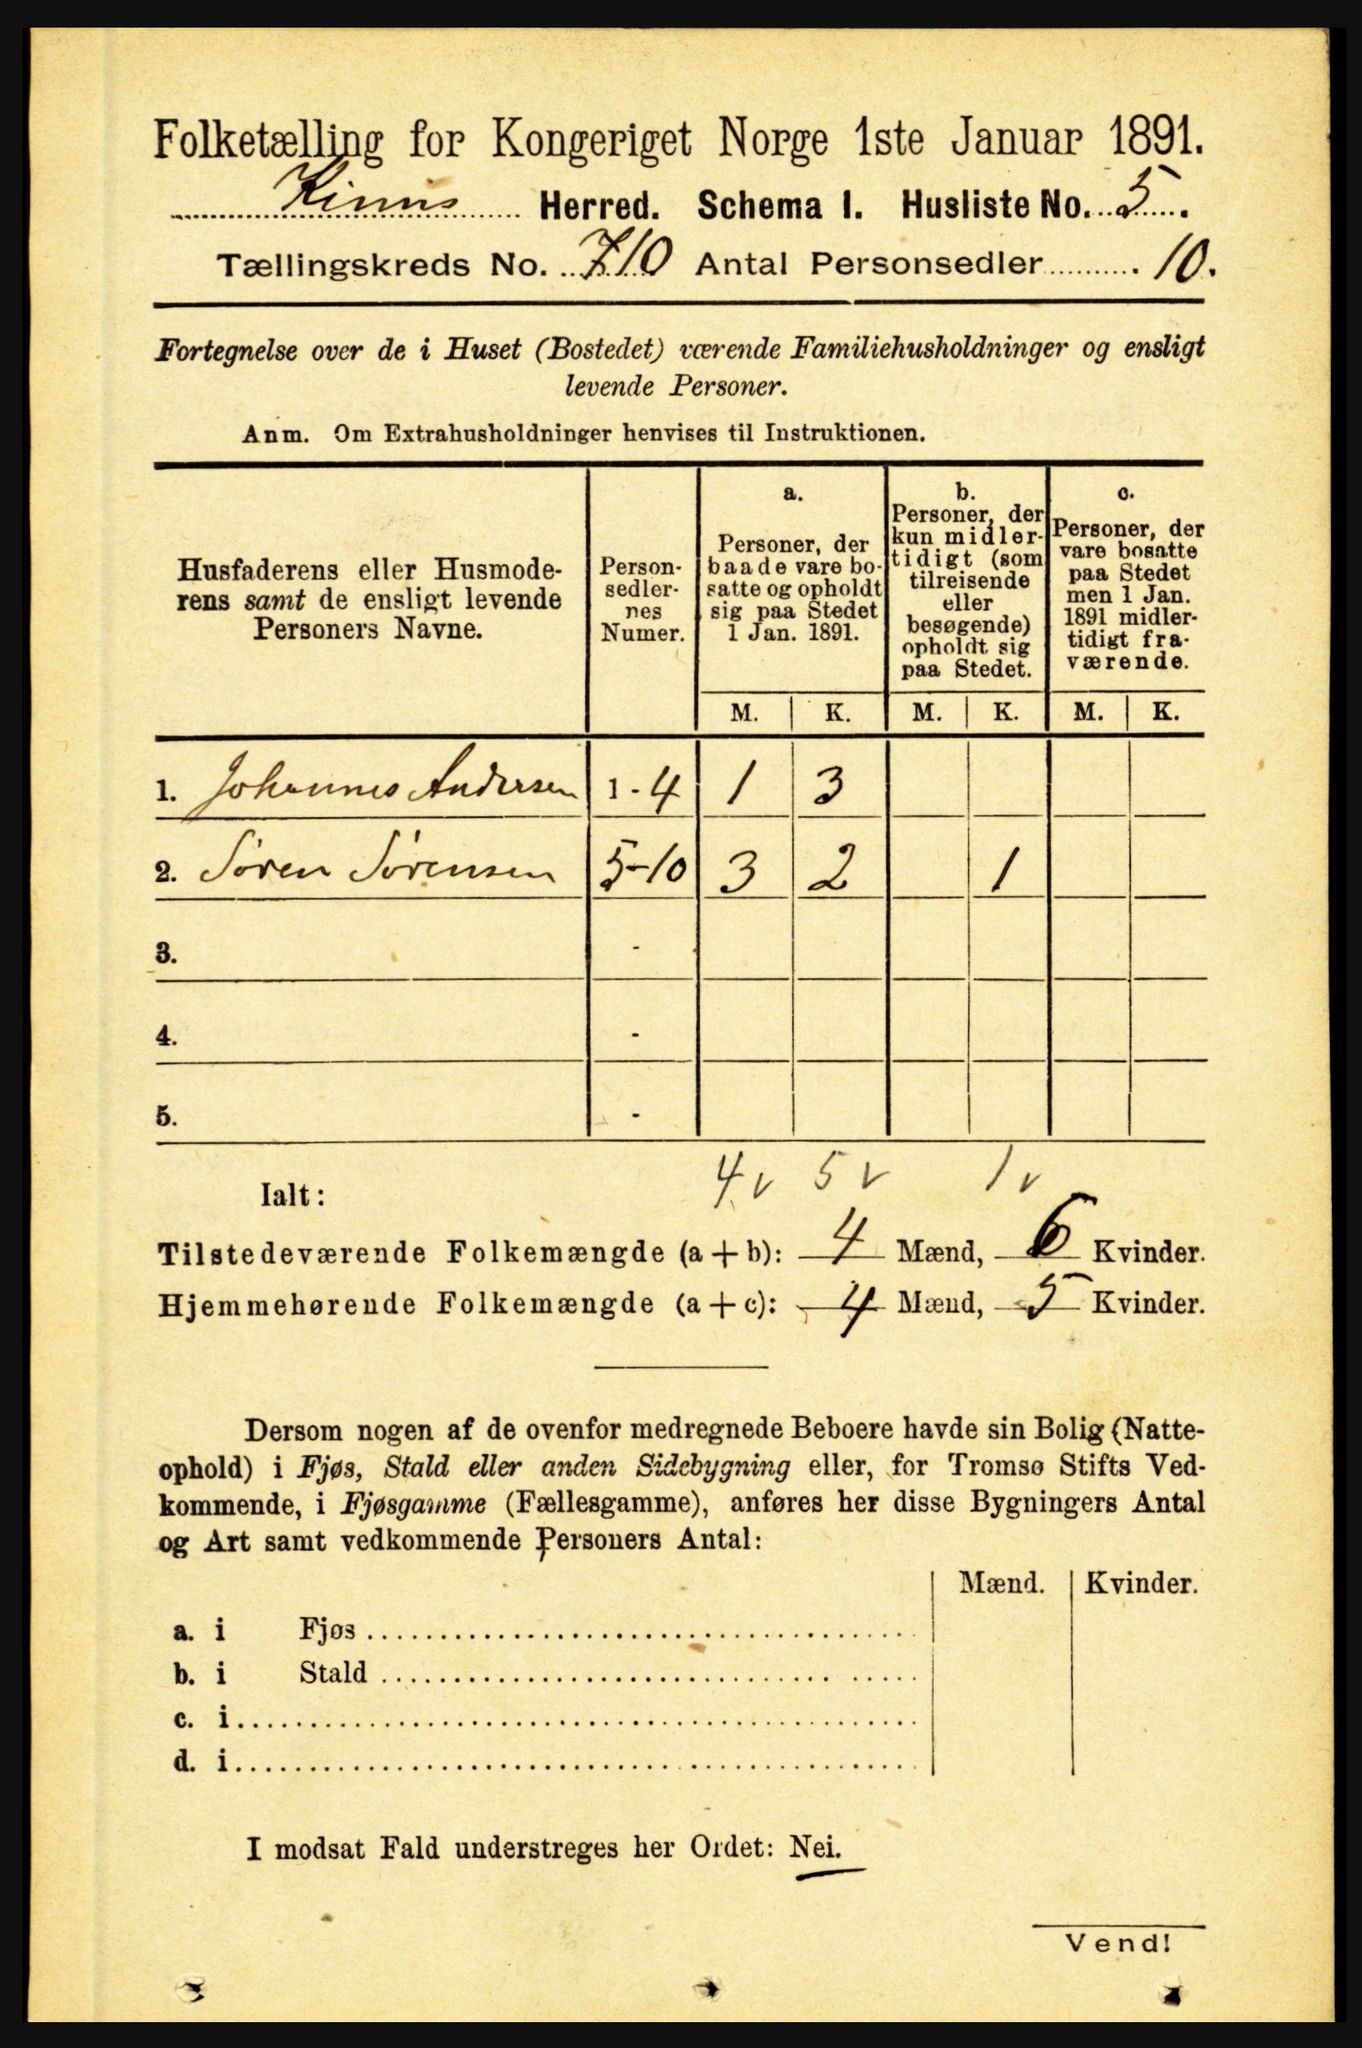 Folketælling for Kongeriget Norge 1ste Januar 1891.
Kinns Herred. Schema 1. Husliste No. 5.
Tællingskreds No. 710 Antal Personsedler 10.
Fortegnelse over de i Huset (Bostedet) værende Familiehusholdninger og ensligt
levende Personer.
Anm. Om Extrahusholdninger henvises til Instruktionen.
Husfaderens eller Husmode-
rens samt de ensligt levende
Personers Navne.
Person-
sedler-
nes
Numer.
a.
Personer, der
baade vare bo-
satte og opholdt
sig paa Stedet
1 Jan. 1891.
b.
Personer, der
kun midler-
tidigt (som
tilreisende
eller
besøgende)
opholdt sig
paa Stedet.
c.
Personer, der
vare bosatte
paa Stedet
men 1 Jan.
1891 midler-
tidigt fra-
værende.
M. K. M. K. M. K.
1. Johannes Andersen 1-4 1 3
2. Søren Sørensen 5-10 3 2 1
3. -
4. -
5. -
4 v 5 v 1 v
Ialt:
Tilstedeværende Folkemængde (a + b): 4 Mænd, 6 Kvinder.
Hjemmehørende Folkemængde (a + c): 4 Mænd, 5 Kvinder.
Dersom nogen af de ovenfor medregnede Beboere havde sin Bolig (Natte-
ophold) i Fjøs, Stald eller anden Sidebygning eller, for Tromsø Stifts Ved-
kommende, i Fjøsgamme (Fællesgamme), anføres her disse Bygningers Antal
og Art samt vedkommende Personers Antal:
Mænd. Kvinder.
a. i Fjøs
b. i Stald
c. i
d. i
I modsat Fald understreges her Ordet: Nei.
Vend!